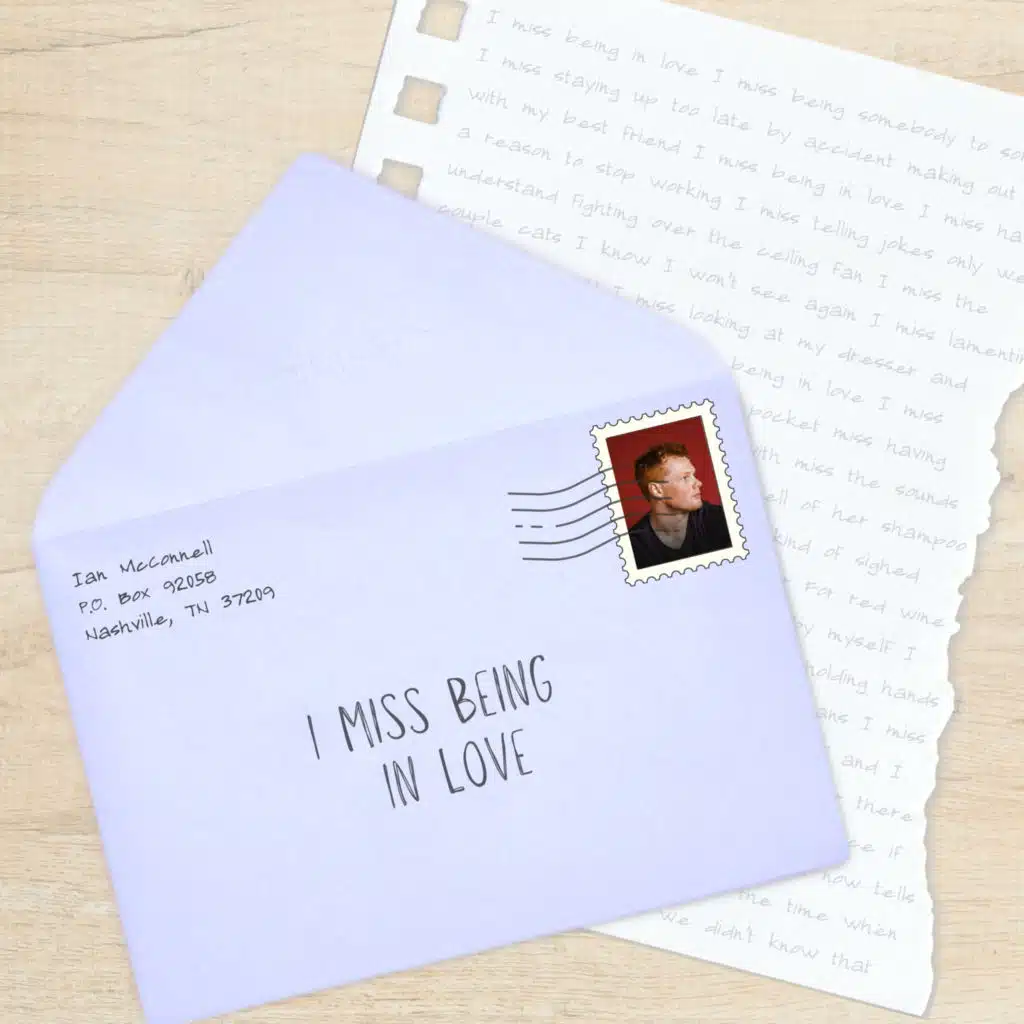 I miss being in love I miss being somebody to
I miss staying up too late by accident making out
with my best friend I miss being in love I miss
a reason to stop working I miss telling jokes only we
understand fighting over the ceiling fan I miss the
couple cats I know I won't see again I miss
I miss looking at my dresser and
being in love I miss
pocket miss having
miss the sounds
of her shampoo
kind of sighed
for red wine
by myself I
holding hands
I miss
and I
there
if
how tells
the time when
we didn't know that
Ian McConnell
P.O. Box 92058
Nashville, TN 37209
I MISS BEING
IN LOVE